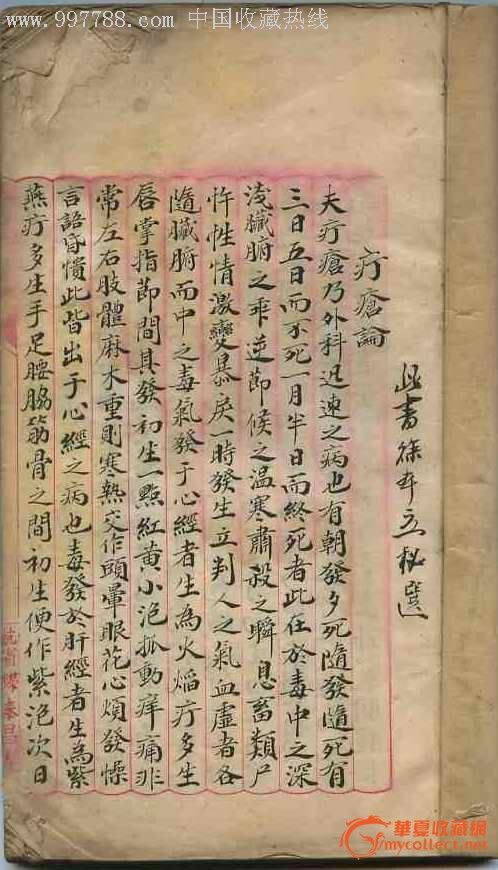 www.997788.com 中国收藏热线
此書徐
秘選
疔瘡論
夫疔瘡乃外科迅速之病也有朝發夕死隨發隨死有
三日五日而不死一月半日而終死者此在於毒中之深
淺臟腑之乖逆節候之温寒肅殺之瞬息畜類尸
忤性情激變暴戾一時發生立判人之氣血虛者各
隨臟腑而中之毒氣發于心經者生為火焰疔多生
唇掌指節間其發初生一點紅黄小泡抓動痒痛非
常左右肢體麻木重則寒熱交作頭暈眼花心煩發懆
言語昏憒此皆出于心經之病也毒發於肝經者生為紫
燕疔多生手足腰脇筋骨之間初生便作紫泡次日
華夏收藏網
mycollect.net